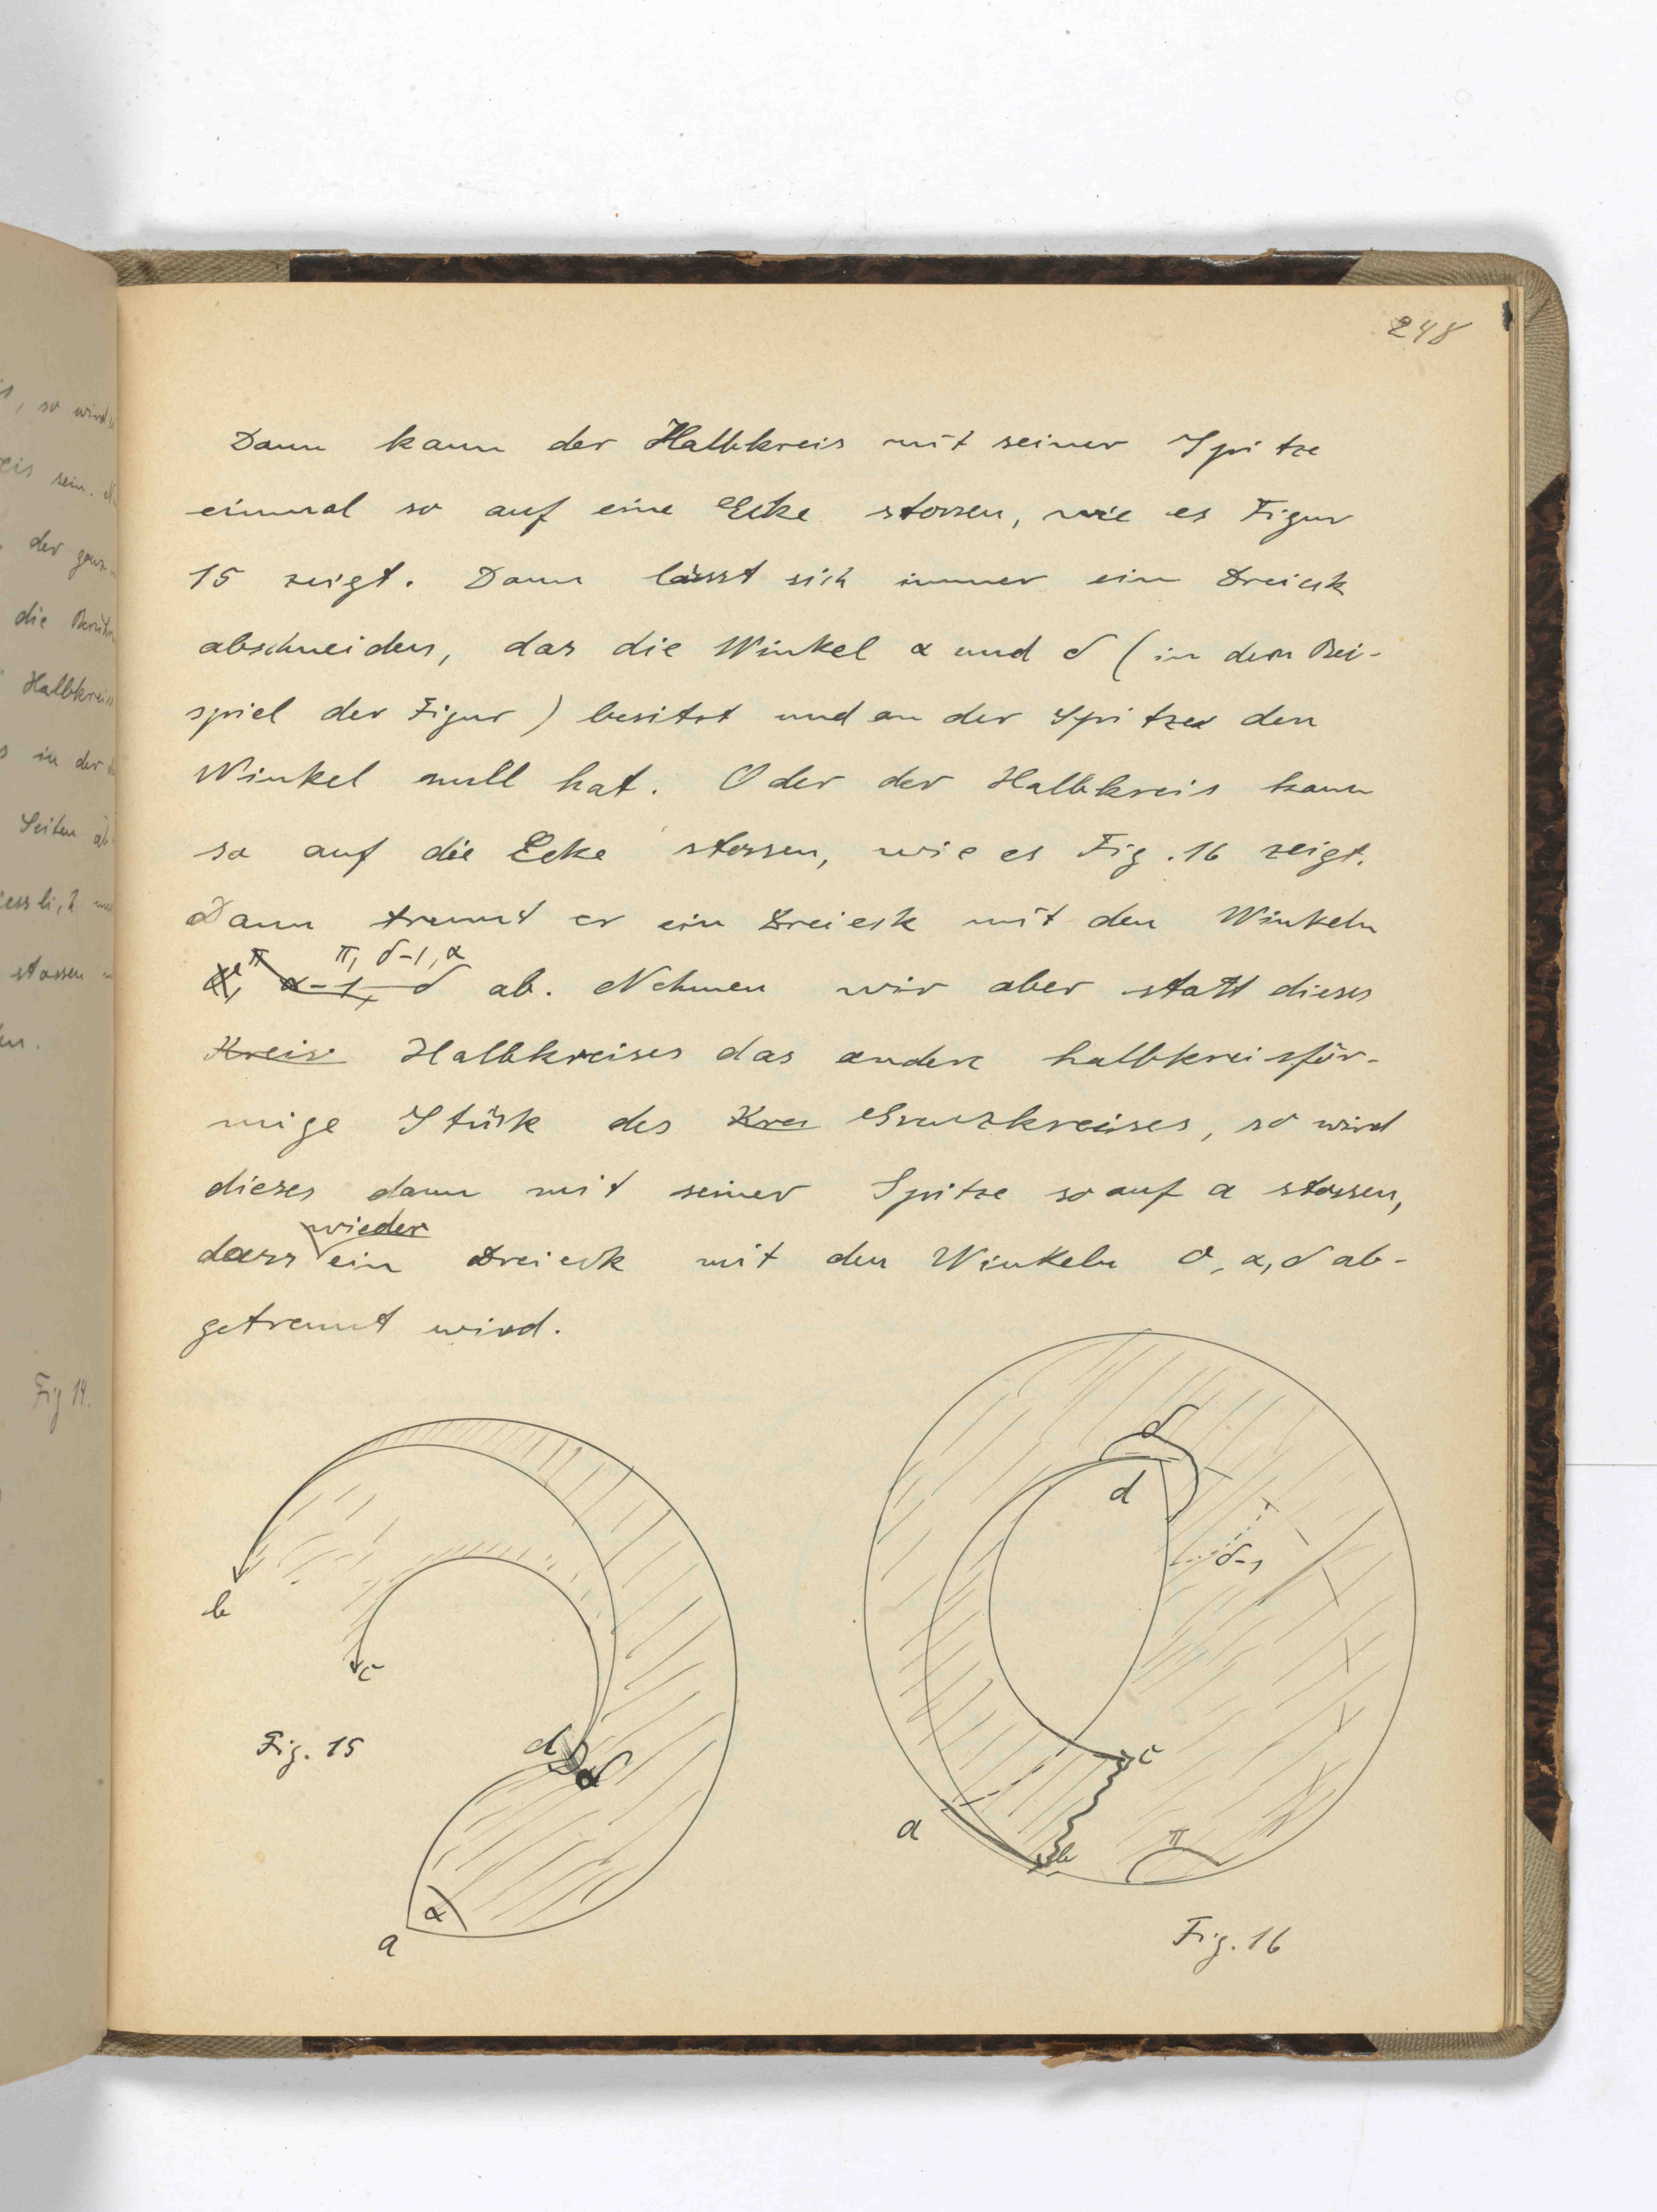 248
Dann kann der Halbkreis mit seiner Spitze
einmal so auf eine Ecke stossen, wie es Figur
15 zeigt. Dann lässt sich immer ein Dreieck
abschneiden, das die Winkel α und δ (in dem Bei-
spiel der Figur) besitzt und an der Spitze den
Winkel null hat. Oder der Halbkreis kann
so auf die Ecke stossen, wie es Fig. 16 zeigt.
Dann trennt er ein Dreieck mit den Winkeln
π, δ-1, α
π α-1, δ ab. Nehmen wir aber statt dieses
Kreis Halbkreises das andere halbkreisför-
mige Stück des Kre Grenzkreises, so wird
dieses dann mit seiner Spitze so auf a stossen,
wieder
dass ein Dreieck mit den Winkeln 0, α, δ ab-
getrennt wird.
b
c
Fig. 15
d
δ
α
a
δ
d
δ-1
c
a
b
π
Fig. 16
, so wird
eis sein.
der
die
Halbkreis
in der
Seiten
stossen
Fig 14.